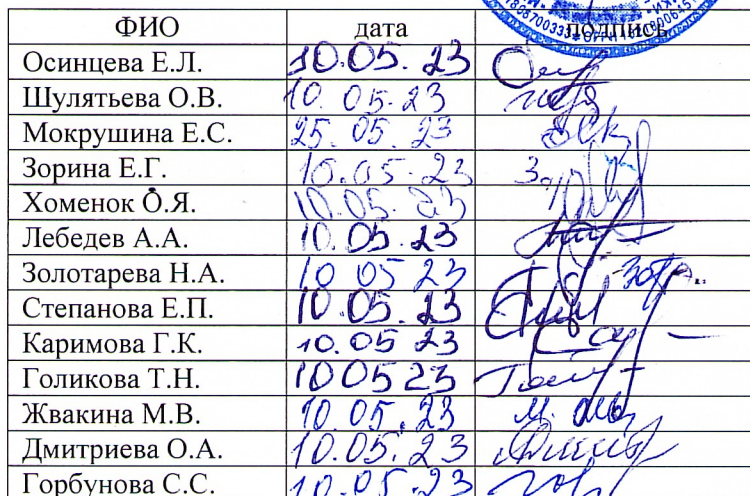 ФИО дата подпись
Осинцева Е.Л. 10.05.23
Шулятьева О.В. 10.05.23
Мокрушина Е.С. 25.05.23
Зорина Е.Г. 10.05.23
Хоменок О.Я. 10.05.23
Лебедев А.А. 10.05.23
Золотарева Н.А. 10 05 23
Степанова Е.П. 10.05.23
Каримова Г.К. 10.05 23
Голикова Т.Н. 10 05 23
Жвакина М.В. 10.05.23
Дмитриева О.А. 10.05.23
Горбунова С.С. 10.05.23